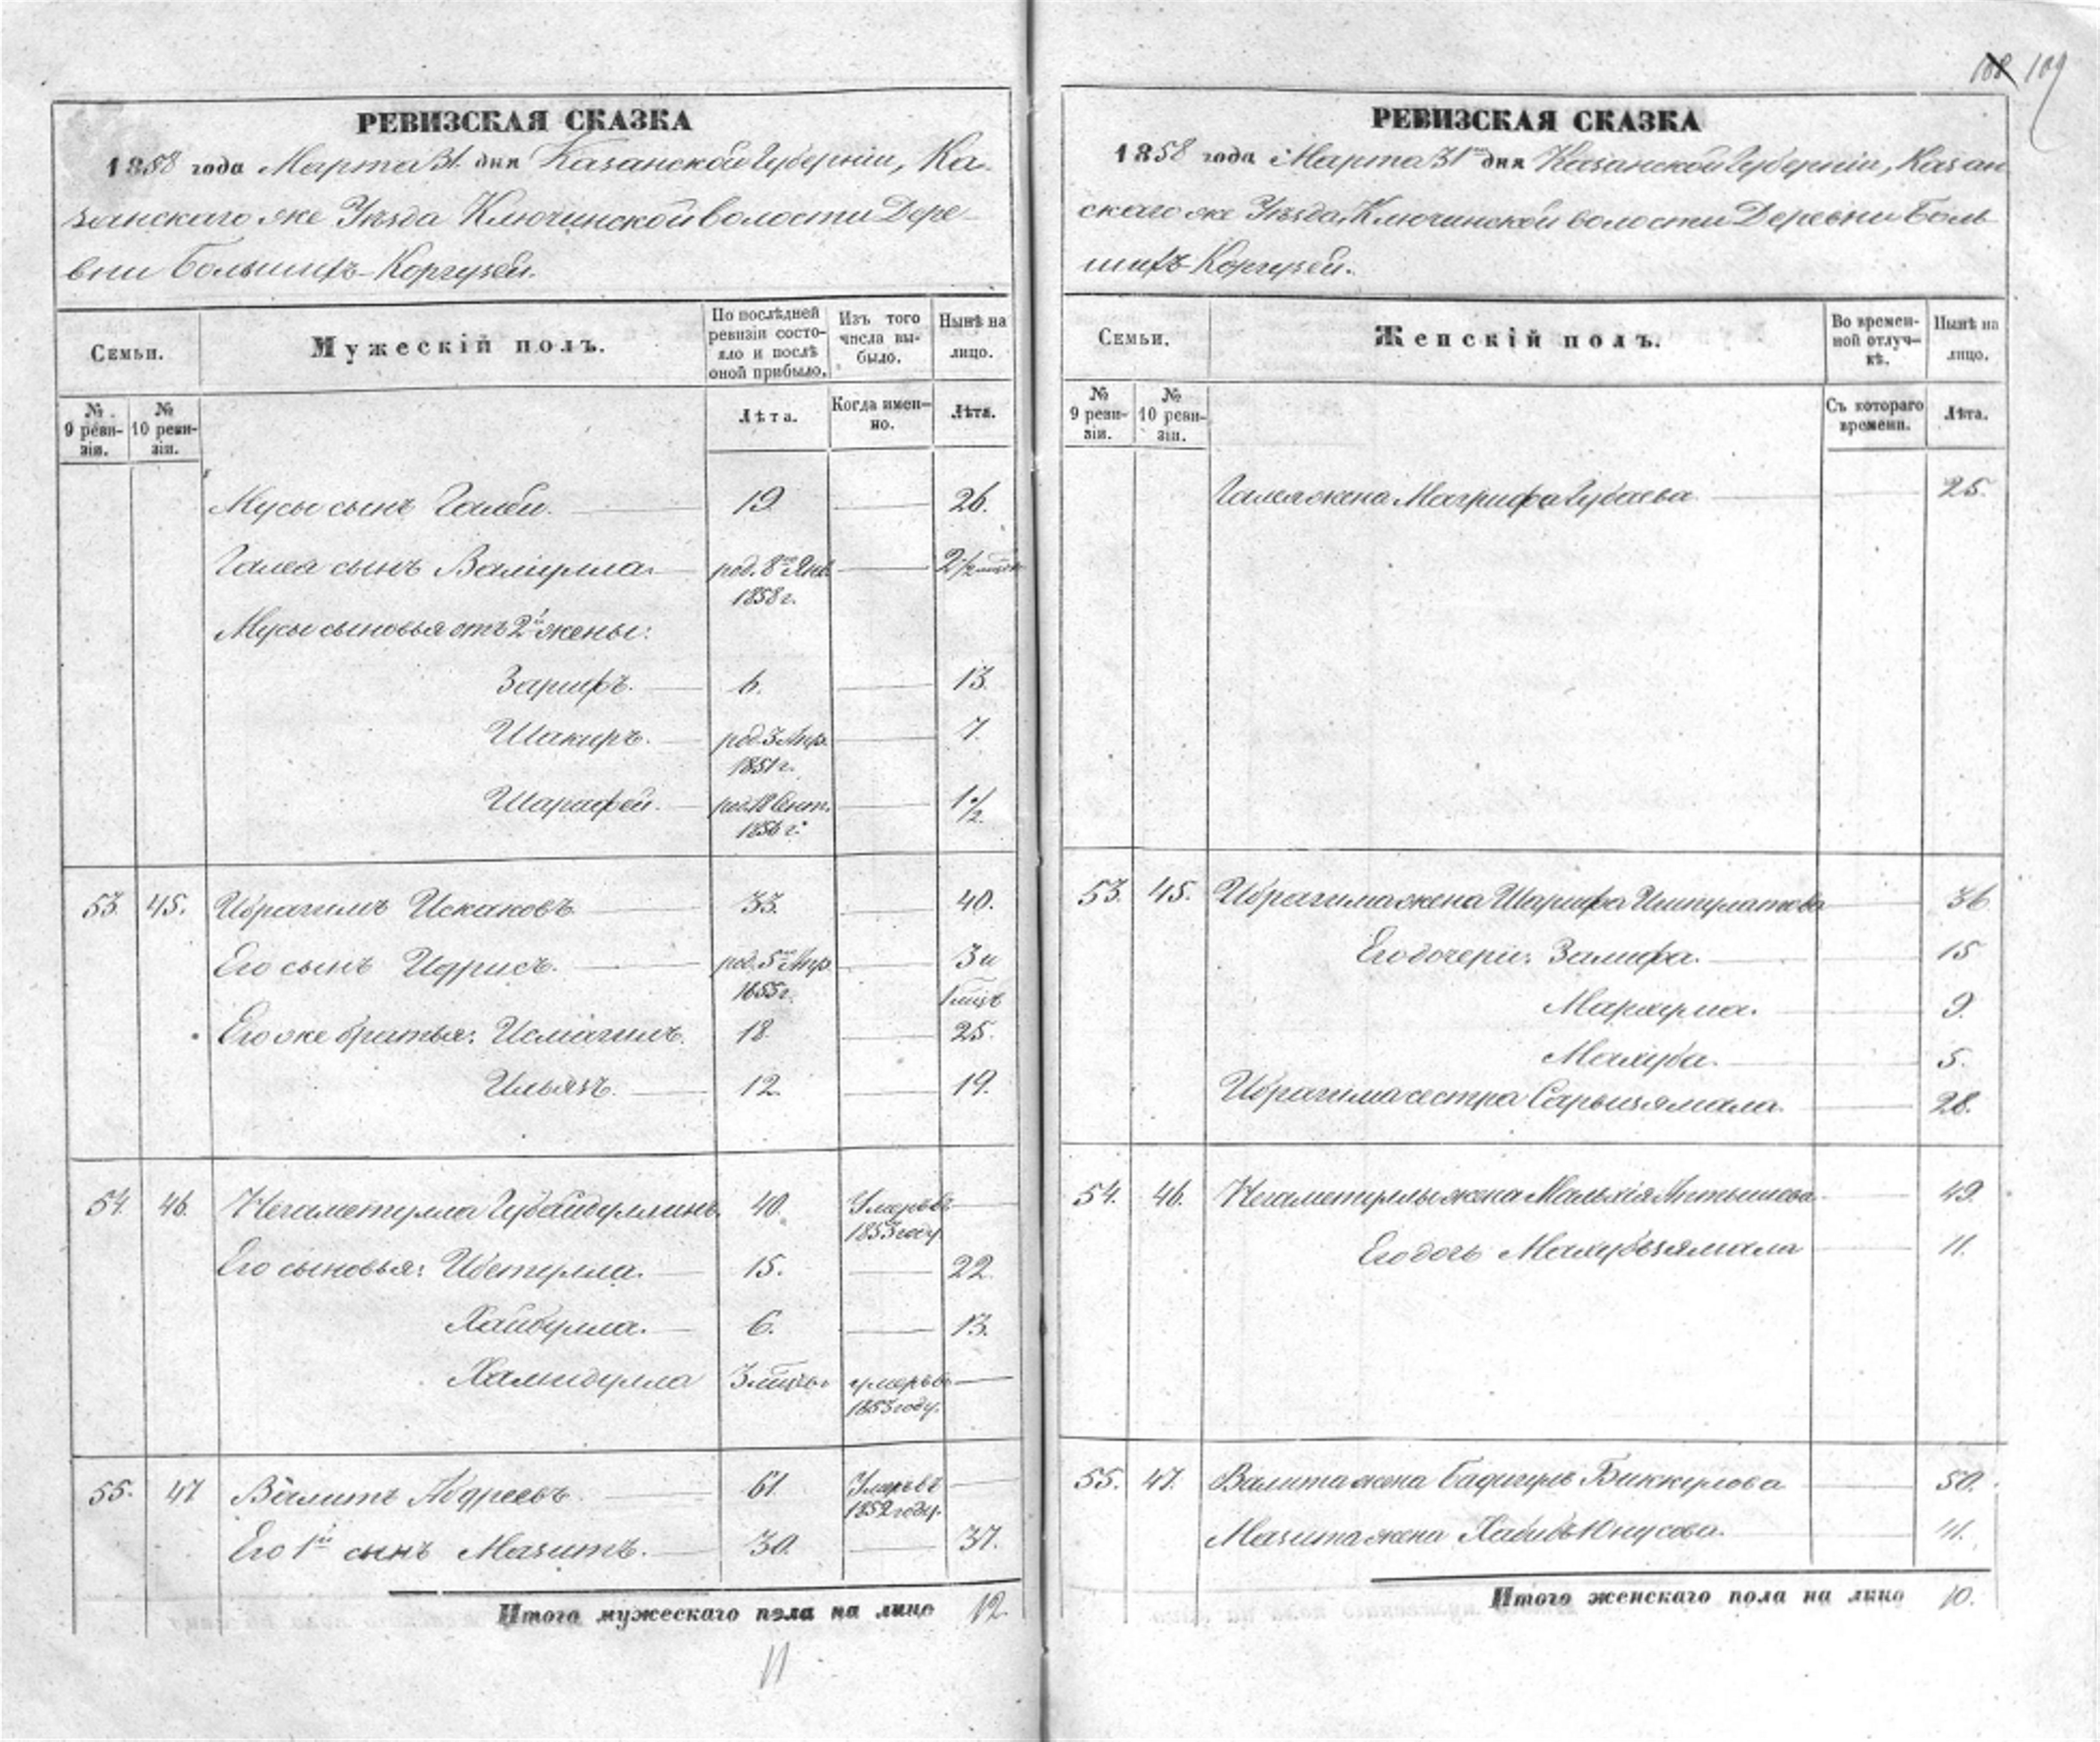 109
РЕВИЗСКАЯ СКАЗКА
1858 года Марта 31. дня Казанской Губерніи, Ка-
занскаго же Уѣзда Ключинской волости Дере-
вни Большихъ-Коргузей.
Семьи.
Мужескій полъ.
По послѣдней ревизіи состо-яло и послѣ оной прибыло.
Изъ того числа вы-было.
Нынѣ на лицо.
№ 9 реви-зіи.
№ 10 реви-зіи.
Лѣта.
Когда имен-но.
Лѣта.
Мусы сынъ Галей. 19. 26.
Галея сынъ Валіулла. род. 8го Янв. 1858 г. 2 1/2
Мусы сыновья отъ 2й жены:
Зарифъ. 6. 13.
Шакиръ. род. 3 Апр. 1851 г. 7.
Шарафей. род. 18 Сент. 1856 г. 1 1/2.
53. 45. Ибрагимъ Искаковъ 33. 40.
Его сынъ Идрисъ. род. 5го Апр. 1855 г. 3 и
Его же братья: Исмагилъ. 18. 25.
Ильязъ. 12. 19.
54. 46. Негаметулла Губайдуллинъ. 40. Умеръ въ 1853 году
Его сыновья: Ибетулла. 15. 22.
Хайбулла. 6. 13.
Хамидулла умеръ въ 1853 году.
55. 47 Валитъ Абдреевъ. 61. Умеръ въ 1852 году.
Его 1й сынъ Мазитъ. 30. 37.
Итого мужескаго пола на лицо 12.
11
РЕВИЗСКАЯ СКАЗКА
1858 года Марта 31го дня Казанской Губерніи, Казан
скаго же Уѣзда, Ключинской волости Деревни Боль-
шихъ-Коргузей.
Семьи.
Женскій полъ.
Во времен-ной отлуч-кѣ.
Нынѣ на лицо.
№ 9 реви-зіи.
№ 10 реви-зіи.
Съ котораго времени.
Лѣта.
Галея жена Магрифа Губаева 25.
53. 45. Ибрагима жена Шарифа 36
Его дочери: Залифа. 15
9.
5.
Ибрагима сестра 28.
54. 46. Негаметуллы жена 49.
Его дочь 11.
55. 47. Валита жена Биккулова 50.
Мазита жена Юнусова. 41.
Итого женскаго пола на лицо 10.